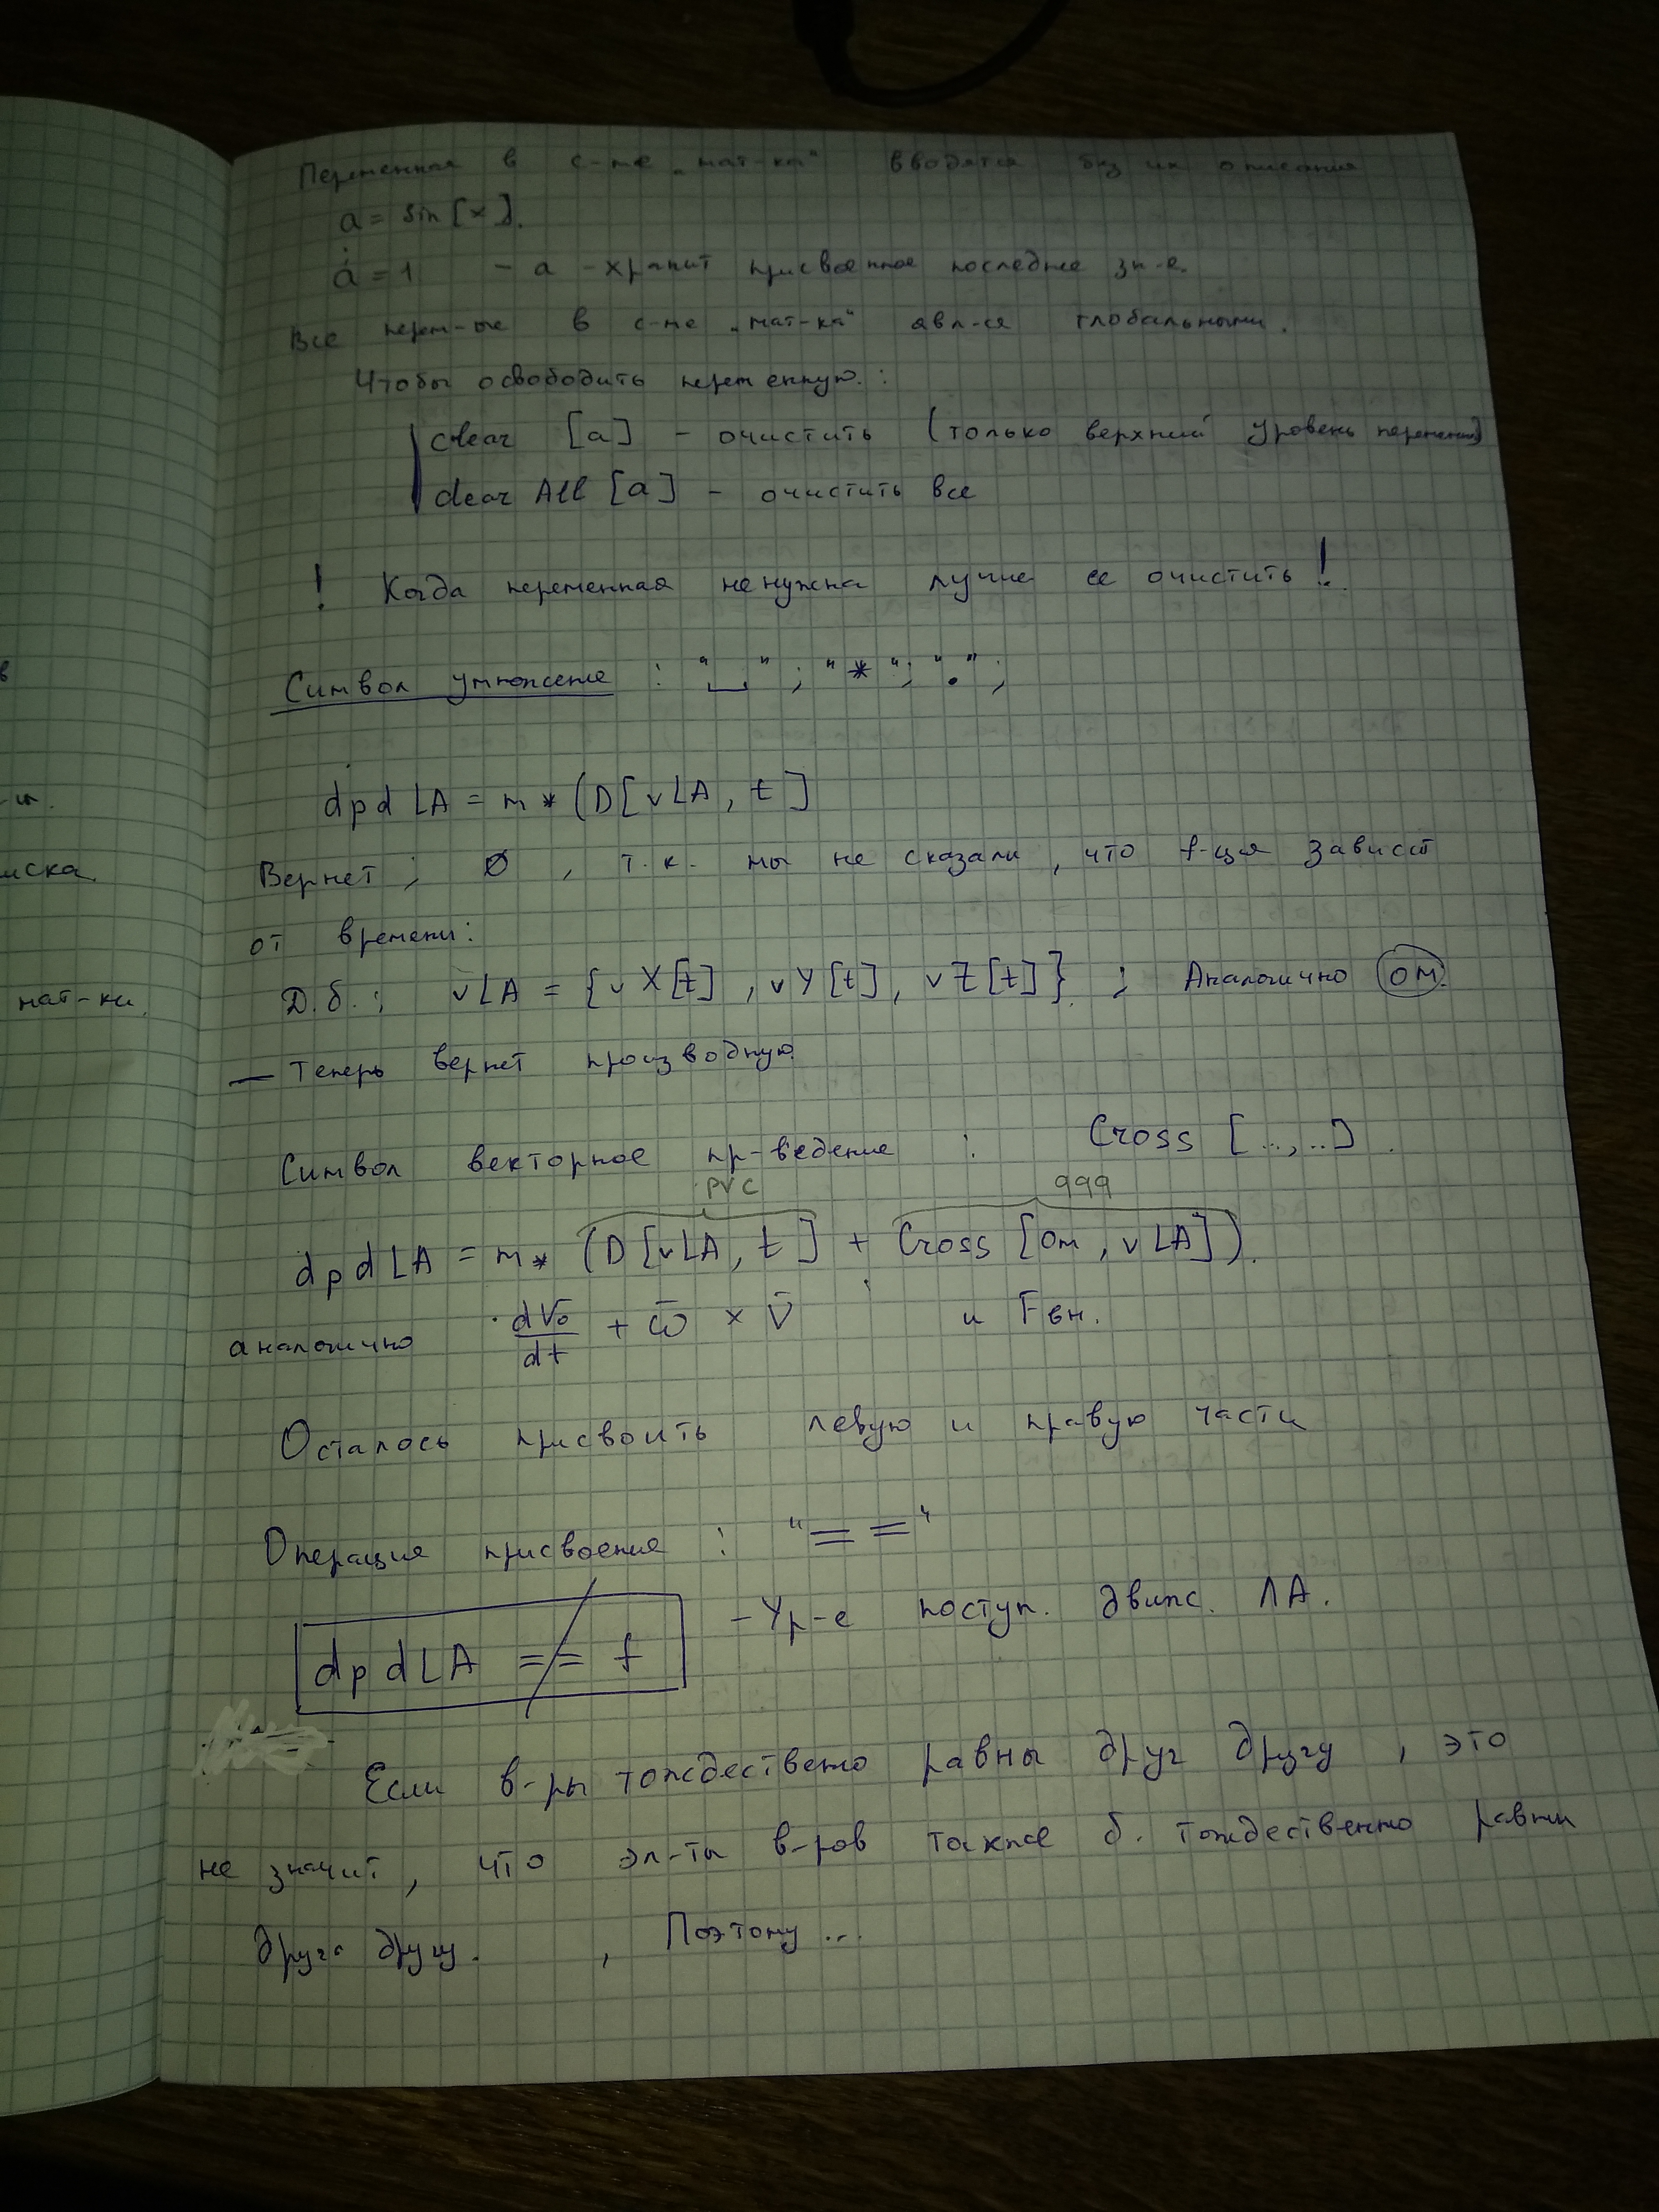 Переменная в с-ме „мат-ка“ вводятся без их описания
a = Sin [x].
a = 1 - a - хранит присвоенное последнее зн-е.
Все перем-ые в с-ме „мат-ка“ явл-ся глобальными.
Чтобы освободить переменную:
clear [a] - очистить (только верхний уровень переменной)
clear All [a] - очистить все
! Когда переменная не нужна лучше ее очистить !
Символ умножение : "␣" ; "*" ; "." ;
dpdLA = m * (D[vLA, t]
Вернет ; Ø , т.к. мы не сказали, что f-ция зависит
от времени:
Д.б. : vLA = {vX[t], vY[t], vZ[t]} ; Аналогично ом.
— Теперь вернет производную.
Символ векторное пр-ведение : Cross [..,..] .
PVC 999
dpdLA = m * (D[vLA, t] + Cross [om, vLA]).
аналогично dV₀/dt + ω̄ × V̄ и Fвн.
Осталось присвоить левую и правую части
Операция присвоения : "= ="
dpdLA == f - Ур-е поступ. движ. ЛА.
Если в-ры тождествено равны друг другу , это
не значит, что эл-ты в-ров также б. тождественно равны
друг другу. , Поэтому ...
в
иска.
мат-ки.